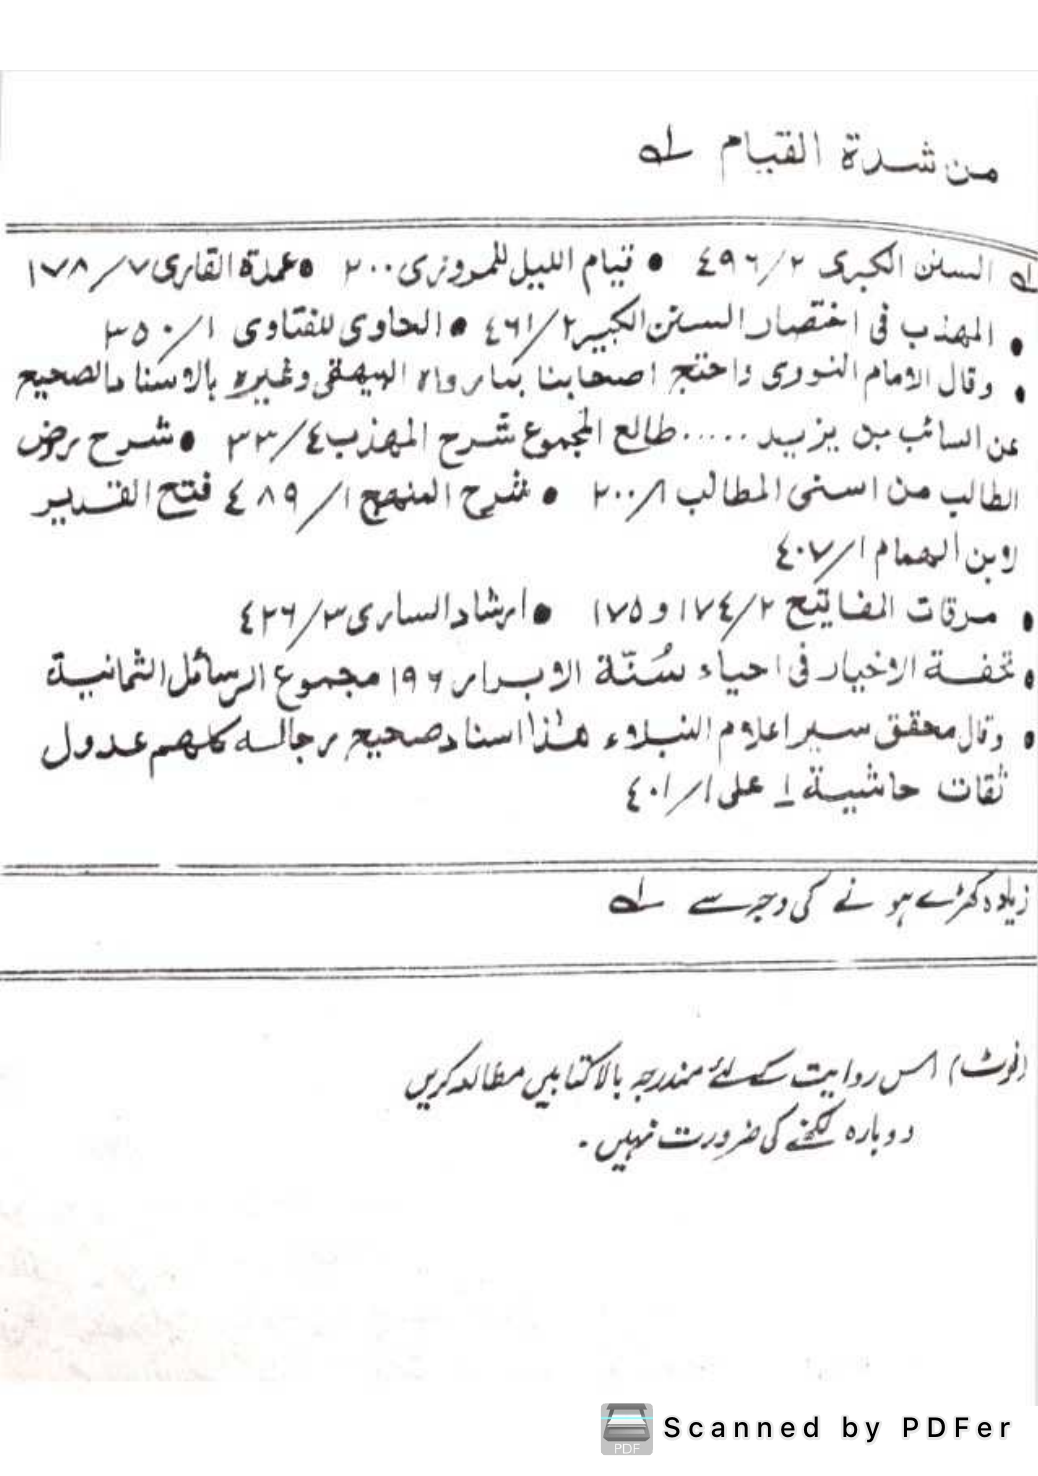 من شدة القیام لہ
لہ السنن الکبری ٢/٤٩٦ • قیام اللیل للمروزی ٢٠٠ • عمدة القاری ٧/١٧٨
• المهذب فی اختصار السنن الکبیر ٢/٤٦١ • الحاوی للفتاوی ١/٣٥٠
• وقال الامام النووی واحتج اصحابنا بما رواه البیهقی وغیره بالاسناد الصحیح
عن السائب بن یزید ..... طالع المجموع شرح المهذب ٤/٣٣ • شرح روض
الطالب من اسنی المطالب ١/٢٠٠ • شرح المنهج ١/٤٨٩ فتح القدیر
لابن الهمام ١/٤٠٧
• مرقات المفاتیح ٢/١٧٤ و ١٧٥ • ارشاد الساری ٣/٤٢٦
• تحفة الاخیار فی احیاء سُنّة الابرار ١٩٦ مجموع الرسائل الثمانیة
• وقال محقق سیر اعلام النبلاء هٰذا اسناد صحیح رجاله کلهم عدول
ثقات حاشیة ١ علی ١/٤٠١
زیادہ کھڑے ہونے کی وجہ سے لہ
(نوٹ) اس روایت کے لئے مندرجہ بالا کتابیں مطالعہ کریں
دوبارہ لکھنے کی ضرورت نہیں۔
PDF
Scanned by PDFer